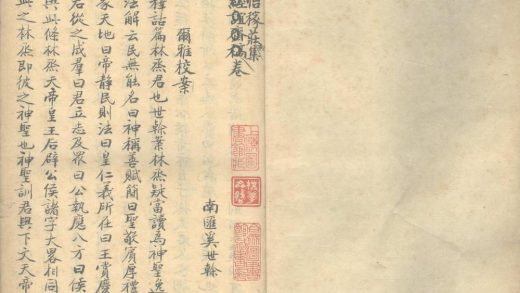 稼莊集
卷
南匯奚世榦
爾雅校案
釋詁篇林烝君也世榦案林烝疑當讀為神聖逸
法解云民無能名曰神稱善賦簡曰聖敬賓厚禮
家天地曰帝靜民則法曰皇仁義所在曰王賞慶
君從之成羣曰君立志及眾曰公執應八方曰侯
與條林烝天帝皇王后辟公侯諸字大畧相同
之林烝即彼之神聖也神聖訓君與下文天帝